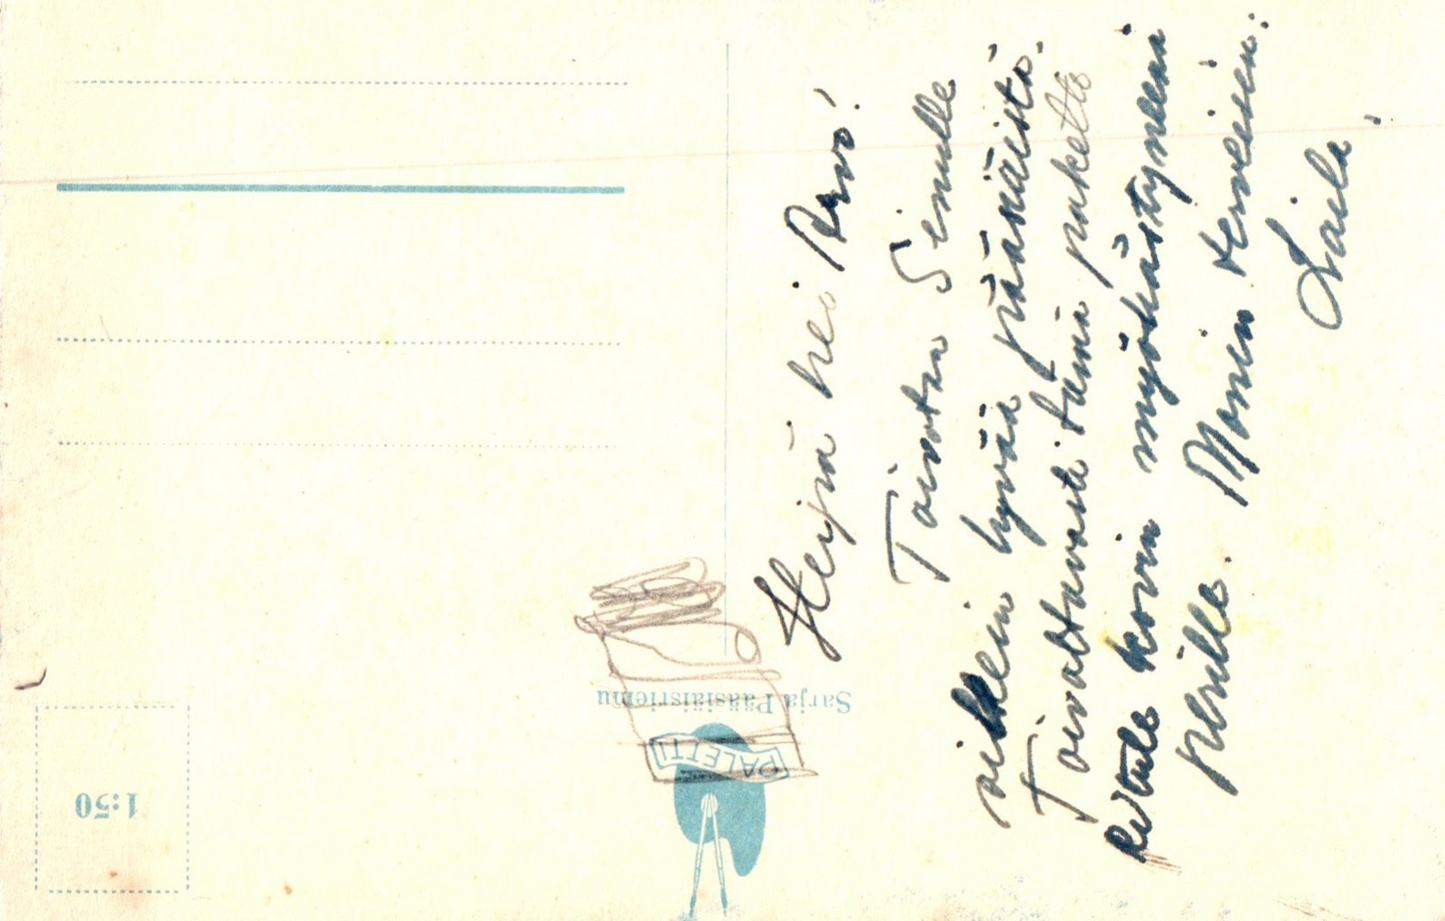 Heipä hei Arvo!
Toivotan Sinulle
oikein hyvää pääsiäistä.
Toivottavasti tämä paketti
ei tule kovin myöhästyneenä
perille. Monin terveisin:
Laila
Sarja Pääsiäisriemu
PALETTI
1:50